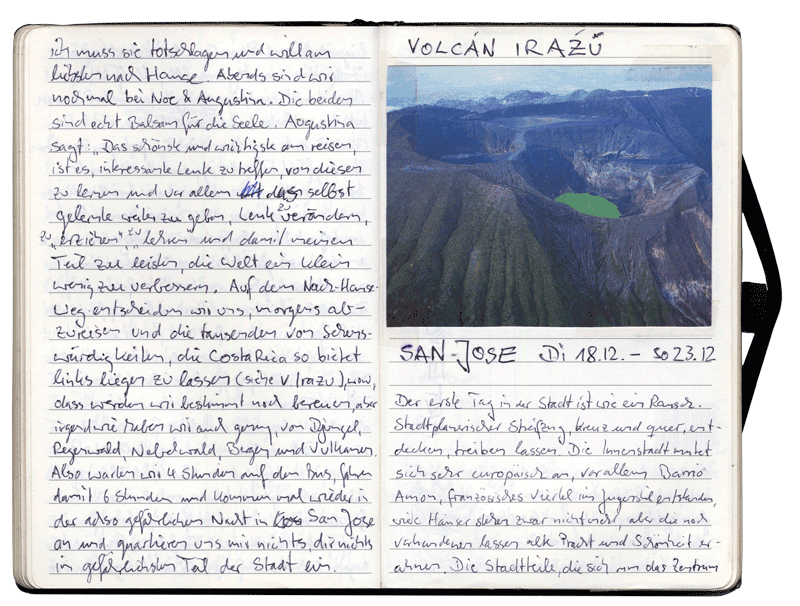 ich muss sie totschlagen und will am
liebsten nach Hause. Abends sind wir
nochmal bei Noe & Augustina. Die beiden
sind echt Balsam für die Seele. Augustina
sagt: „Das schönste und wichtigste am reisen,
ist es, interessante Leute zu treffen, von diesen
zu lernen und vor allem das selbst
gelernte weiter zu geben, Leute zu verändern,
zu „erziehen", zu lehren und damit meinen
Teil zu leisten, die Welt ein klein
wenig zu verbessern. Auf dem Nach-Hause-
Weg entscheiden wir uns, morgens ab-
zureisen und die tausenden von Sehens-
würdigkeiten, die Costa Rica so bietet
links liegen zu lassen (siehe V. Irazu), wow,
dass werden wir bestimmt noch bereuen, aber
irgendwie haben wir auch genug, von Djungel,
Regenwald, Nebelwald, Bergen und Vulkanen.
Also warten wir 4 Stunden auf den Bus, fahren
damit 6 Stunden und kommen mal wieder in
der achso gefährlichen Nacht in San Jose
an und quartieren uns mir nichts, dir nichts
im gefährlichsten Teil der Stadt ein.
VOLCÁN IRAZÚ
SAN-JOSE Di 18.12. – So 23.12
Der erste Tag in der Stadt ist wie ein Rausch.
Stadtplanerischer Streifzug, kreuz und quer, ent-
decken, treiben lassen. Die Innenstadt mutet
sich sehr europäisch an, vor allem Barrio
Amon, französisches Viertel im Jugendstil entstanden,
viele Häuser stehen zwar nicht mehr, aber die noch
vorhandenen lassen alte Pracht und Schönheit er-
ahnen. Die Stadtteile, die sich um das Zentrum